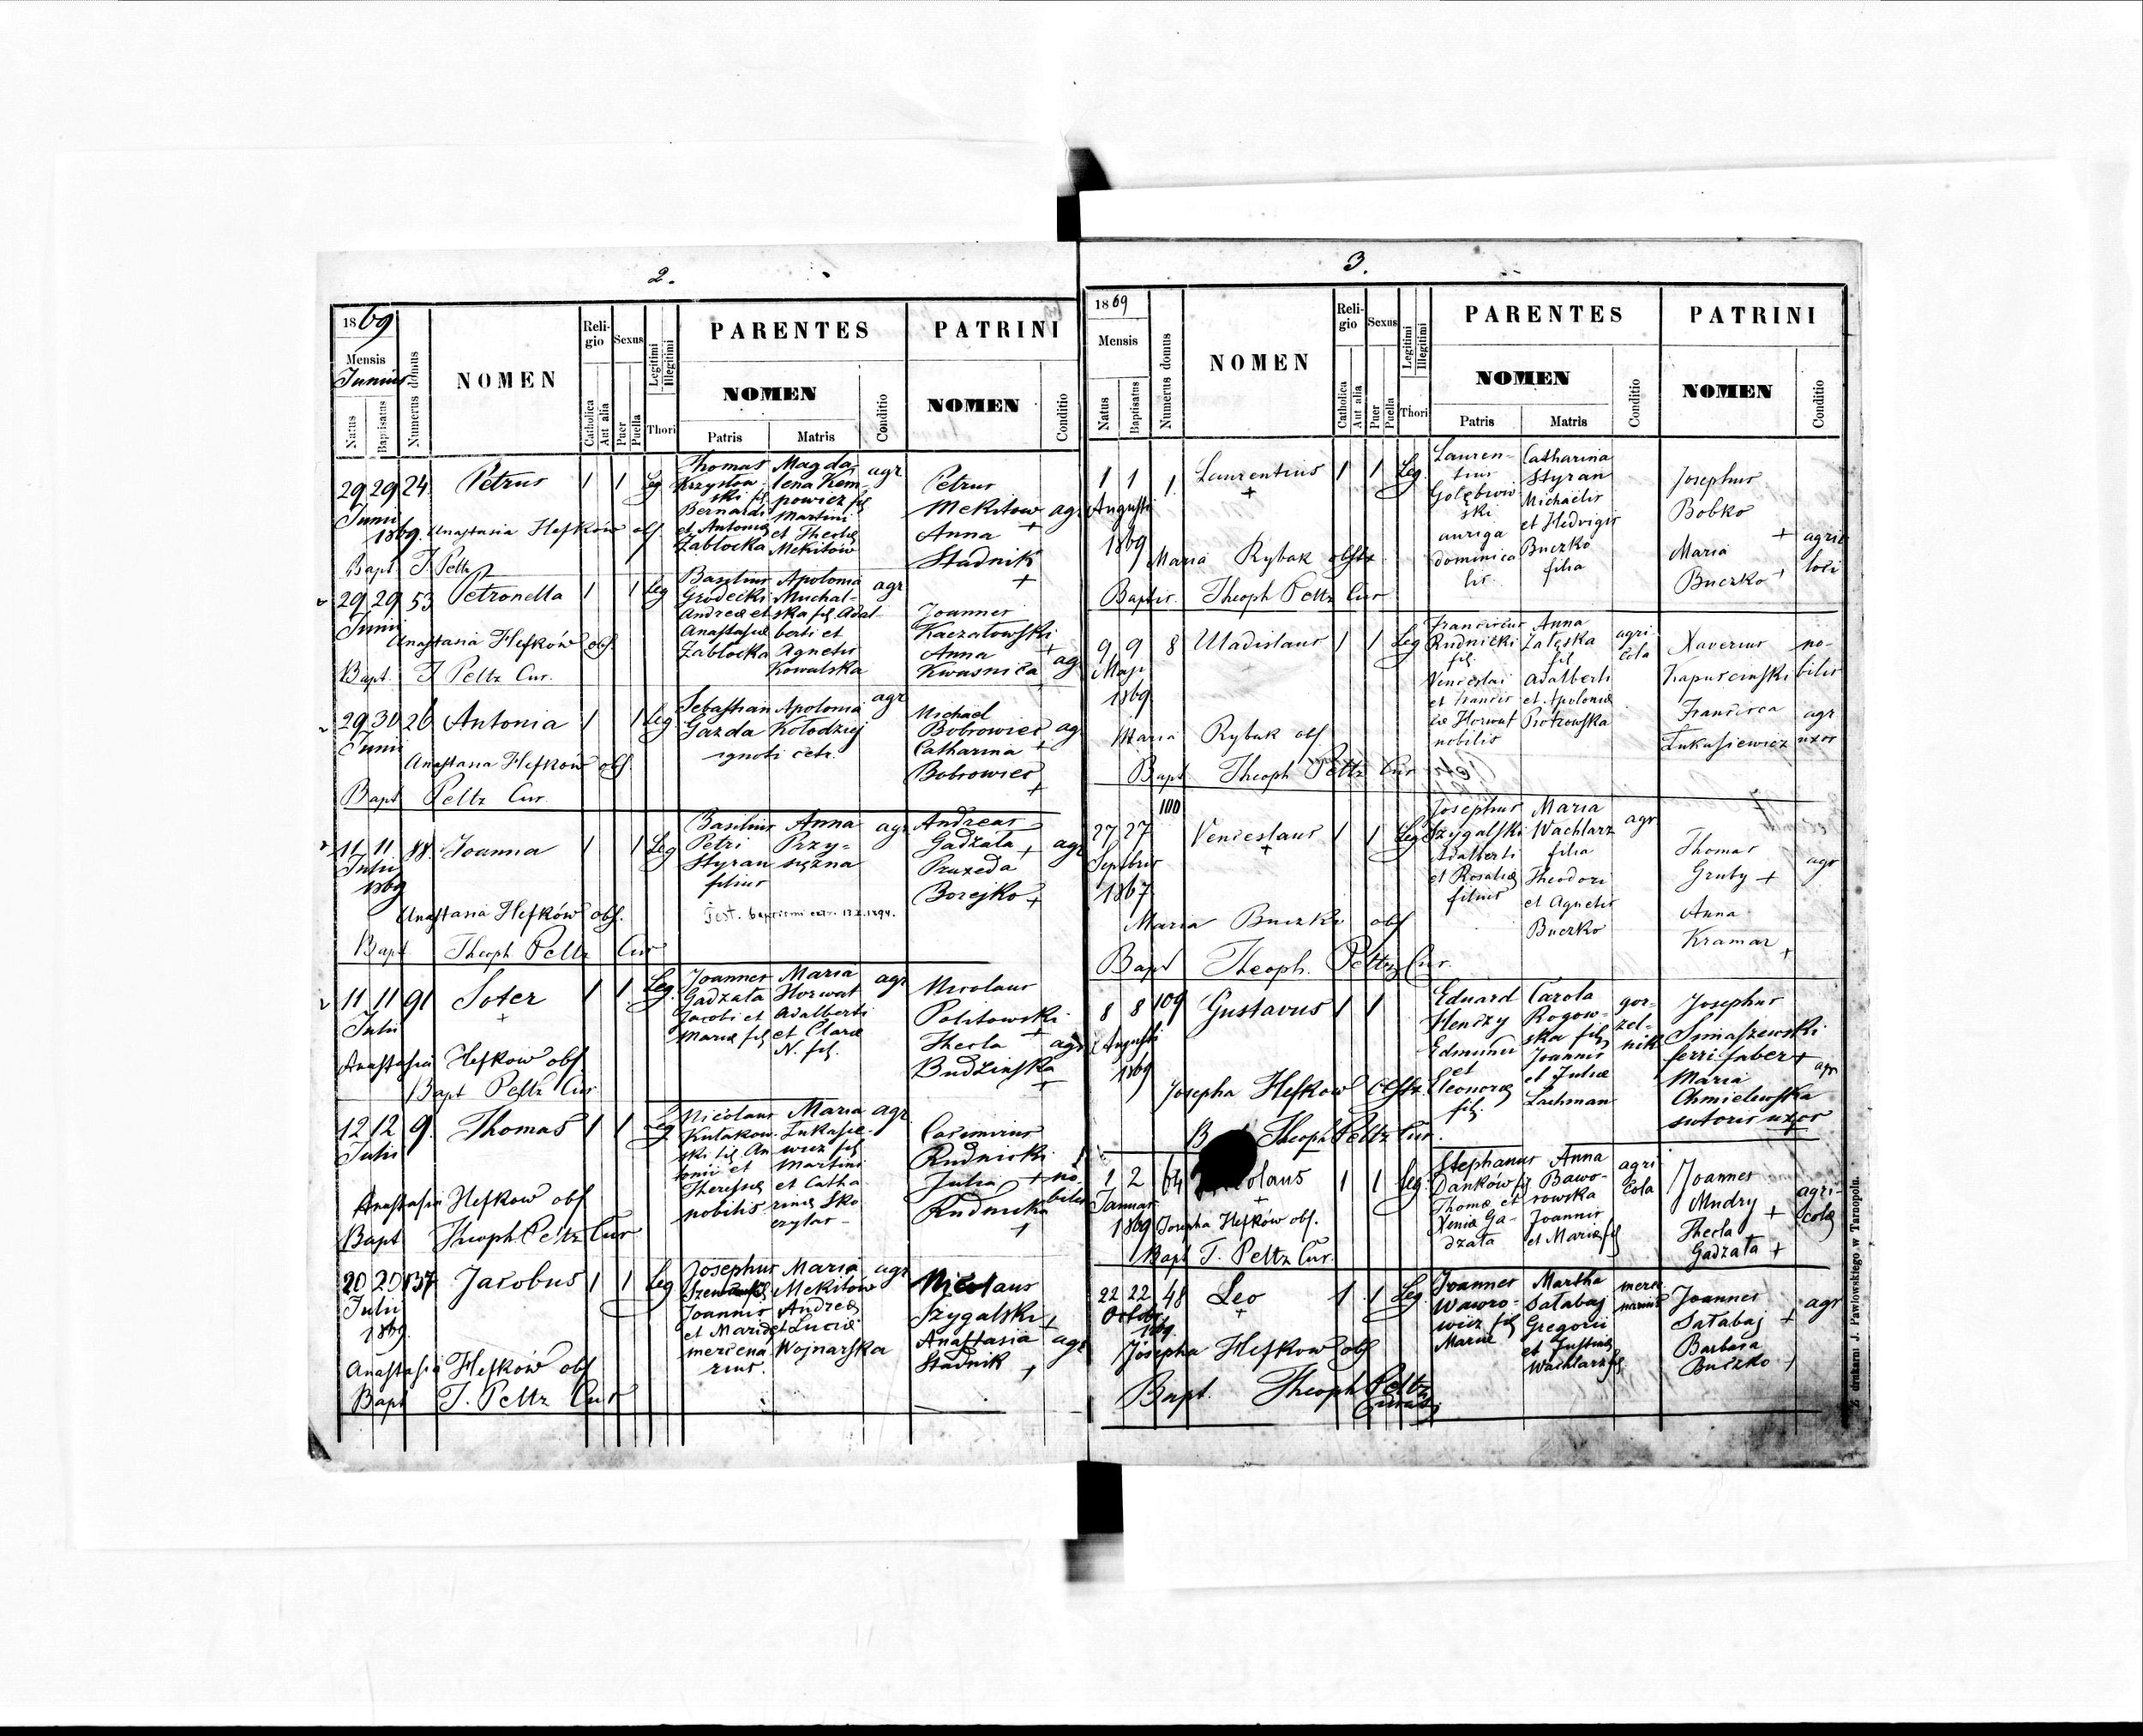 2.
1869
Mensis
Junius
Natus
Baptisatus
Numerus domus
NOMEN
Reli-
gio
Catholica
Aut alia
Sexus
Puer
Puella
Legitimi
Illegitimi
Thori
PARENTES
NOMEN
Patris
Matris
Conditio
PATRINI
NOMEN
Conditio
29 29 24 Petrus 1 1 Leg
Junii
1869. Anastasia Hefków obs.
Bapt. T Peltz
Thomas
Krzysztow
ski fil
Bernardi
et Antonia
Zabłocka
Magda
lena Kem-
powicz fil
Martini
et Theclae
Mekitow
agr
Petrus
Mekitow agr
Anna +
Stadnik
+
29 29 53 Petronella 1 1 Leg
Junii
Anastasia Hefków obs.
Bapt. T Peltz Cur.
Basilius
Grodecki
Andreae et
Anastasiae
Zabłocka
Apolonia
Muchal-
ska fil. Adal-
berti et
Agnetis
Kowalska
agr
Joannes
Kaczałowski
Anna +
Kwasnica agr
29 30 26 Antonia 1 1 Leg
Junii
Anastasia Hefków obs.
Bapt Peltz Cur.
Sebastian Apolonia agr
Gazda Kołodziej
ignoti cetr.
Michael
Bobrowiec agr
Catharina +
Bobrowiec
+
11 11 88. Joanna 1 1 Leg
Julii
1869
Anastasia Hefków obs.
Bapt Theoph Peltz Cur
Basilius Anna agr
Petri Przy-
Styran sężna
filius
Test. baptismi extr. 1894.
Andreas
Gadzała + agr
Praxeda
Borejko +
11 11 91 Soter 1 1 Leg.
+
Julii
Anastasia Hefkow obs
Bapt Peltz Cur
Joannes Maria agr
Gadzała Horwat
Jacobi et Adalberti
Mariae fil et Clarae
N. fil.
Nicolaus
Politowski
+
Thecla agr
Budzinska
+
12 12 9. Thomas 1 1 Leg
Julii
Anastasia Hefkow obs
Bapt Theoph. Peltz Cur
Nicolaus Maria agr
Kułakow- Łukasie-
ski fil An wicz fil
tonii et Martini
Theresiae et Catha
nobilis rinae Sko
czylas
Casimirus
Rudnicki
Julia + no
Rudnicka bilis
+
20 20 137 Jacobus 1 1 Leg
Julii
1869.
Anastasia Hefków obs
Bapt T. Peltz Cur
Josephus Maria agr
Mekitów
Joannis Andreae
et Mariae et Luciae
mercena Wojnarska
rius.
Nicolaus
Szygalski
+
Anastasia agr
Stadnik +
3.
1869
Mensis
Natus
Baptisatus
Numerus domus
NOMEN
Reli-
gio
Catholica
Aut alia
Sexus
Puer
Puella
Legitimi
Illegitimi
Thori
PARENTES
NOMEN
Patris
Matris
Conditio
PATRINI
NOMEN
Conditio
1 1 1. Laurentius 1 1 Leg.
+
Augusti
1869
Maria Rybak obstx
Baptis. Theoph Peltz Cur
Lauren-
tius
Gołębiow
ski
auriga
dominica
lis.
Catharina
Styran
Michaëlis
et Hedvigis
Buczko
filia
Josephus
Bobko
+ agri
Maria colae
Buczko +
9 9 8 Uladislaus 1 1 Leg
Maji
1869
Maria Rybak obs
Bapt Theoph Peltz Cur
Franciscus Anna agri
Rudnicki Załęska cola
fil. fil
Venceslai Adalberti
et Francis et Apoloniae
cae Horwat Piotrowska
nobilis
Xaverius no-
Kapuscinski bilis
Francisca agr
Łukasiewicz uxor
100
27 27 Venceslaus 1 1 Leg
+
Septbris
1867
Maria Buczko obs
Bapt Theoph. Peltz Cur.
Josephus Maria agr
Szygalski Wachlarz
Adalberti filia
et Rosaliae Theodori
filius et Agnetis
Buczko
Thomas
Gruby + agr
Anna
Kramar +
8 8 109 Gustavus 1 1
Augusti
1869
Josepha Hefkow obstx.
B Theoph Peltz Cur.
Eduard Carola gor-
Henczy Rogow- zel-
Edmundi ska fil nik
et Joannis
Eleonorae et Juliae
fil. Lachman
Josephus
Smaszewski
ferri faber +
Maria agr
Chmielewska
sutoris uxor
+
1 2 64 olaus 1 1 Leg.
+
Januar
1869 Josepha Hefków obs.
Bapt T. Peltz Cur.
Stephanus Anna agri
Danków fil Bawo- cola
Thomae et rowska
Xeniae Ga- Joannis
dzała et Mariae fil
Joannes
Mudry + agri-
Thecla colae
Gadzała +
22 22 48 Leo 1 1 Leg
+
Octobr
1869.
Josepha Hefkow obs
Bapt. Theoph Peltz
Curat.
Joannes Martha merce
Wawro- Sałabaj narius
wicz fil Gregorii
Mariae et Justinae
Wachlarz fil
Joannes agr
Sałabaj +
Barbara
Buczko +
Z drukarni J. Pawłowskiego w Tarnopolu.